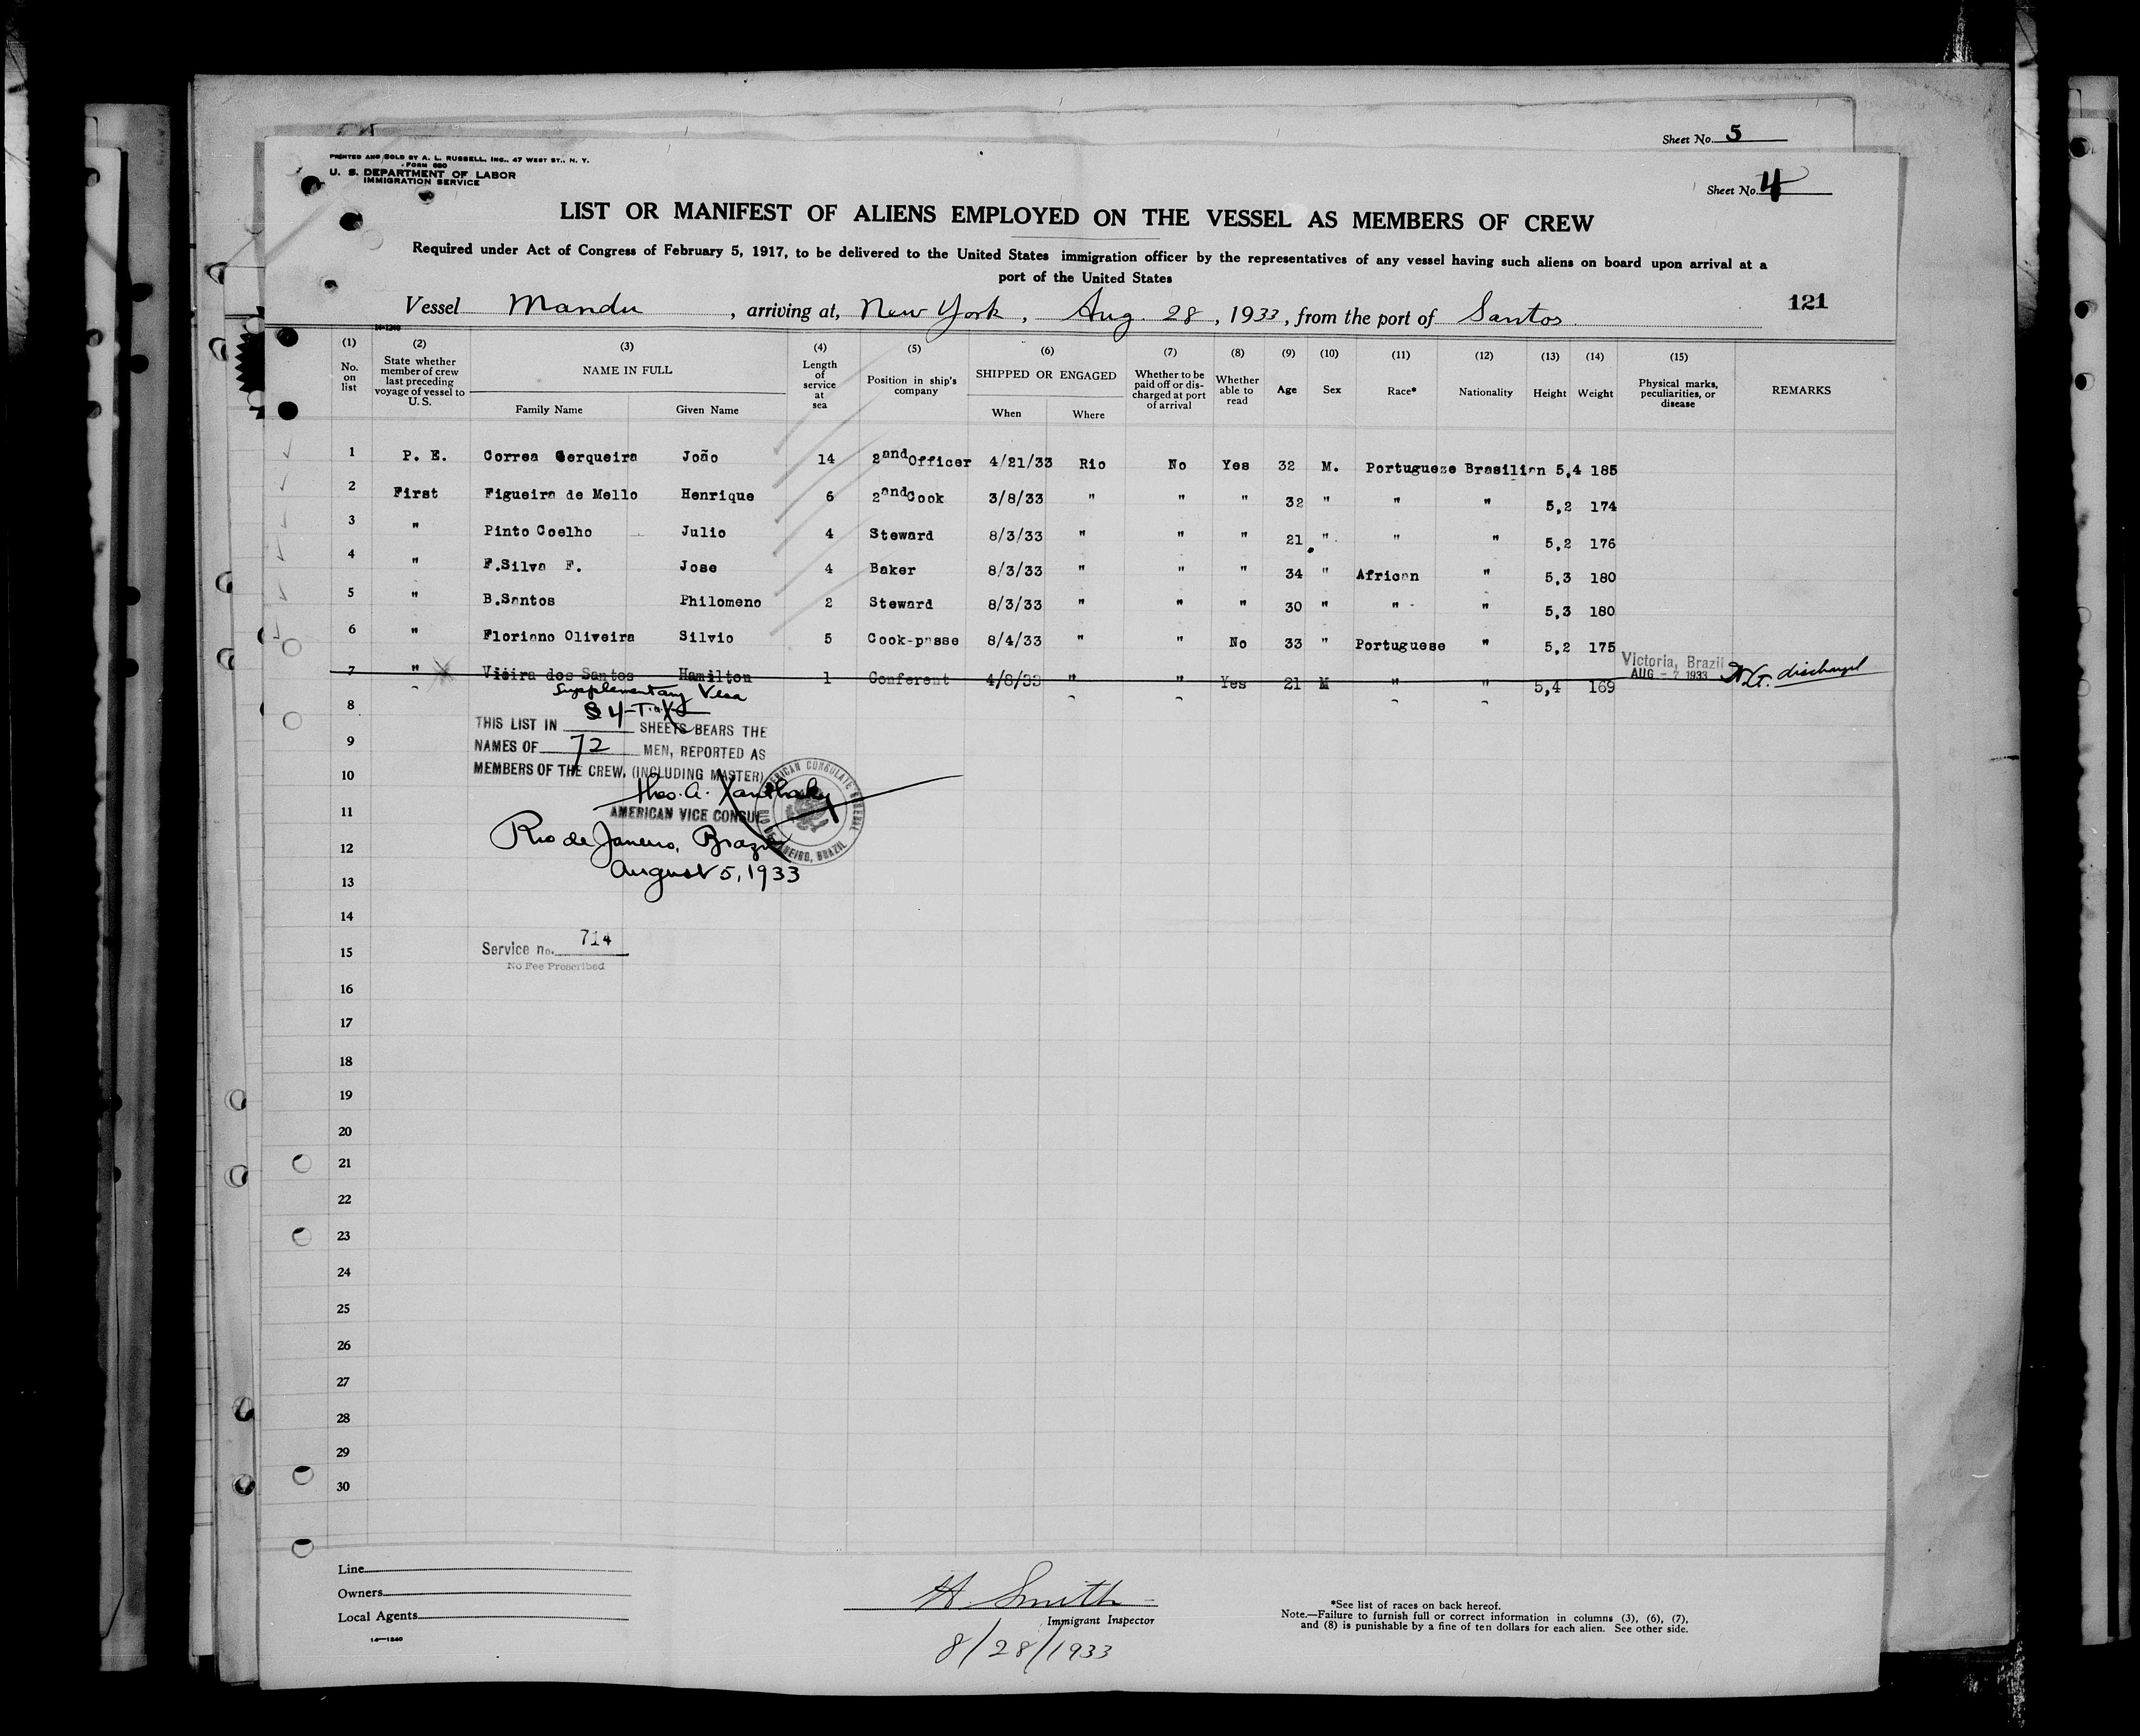 Sheet No. 5
PRINTED AND SOLD BY A. L. RUSSELL, INC., 47 WEST ST., N. Y.
FORM 680
U. S. DEPARTMENT OF LABOR
IMMIGRATION SERVICE
Sheet No. 4
LIST OR MANIFEST OF ALIENS EMPLOYED ON THE VESSEL AS MEMBERS OF CREW
Required under Act of Congress of February 5, 1917, to be delivered to the United States immigration officer by the representatives of any vessel having such aliens on board upon arrival at a
port of the United States
Vessel Mandu, arriving at, New York, Aug. 28, 1933, from the port of Santos. 121
14-1240
(1) No. on list (2) State whether member of crew last preceding voyage of vessel to U. S. (3) NAME IN FULL Family Name Given Name (4) Length of service at sea (5) Position in ship's company (6) SHIPPED OR ENGAGED When Where (7) Whether to be paid off or discharged at port of arrival (8) Whether able to read (9) Age (10) Sex (11) Race* (12) Nationality (13) Height (14) Weight (15) Physical marks, peculiarities, or disease REMARKS
1 P. E. Correa Cerqueira João 14 2and Officer 4/21/33 Rio No Yes 32 M. Portuguese Brasilian 5,4 185
2 First Figueira de Mello Henrique 6 2and Cook 3/8/33 " " " 32 " " " 5,2 174
3 " Pinto Coelho Julio 4 Steward 8/3/33 " " " 21 " " " 5,2 176
4 " F.Silva F. Jose 4 Baker 8/3/33 " " " 34 " African " 5,3 180
5 " B.Santos Philomeno 2 Steward 8/3/33 " " " 30 " " " 5,3 180
6 " Floriano Oliveira Silvio 5 Cook-passe 8/4/33 " " No 33 " Portuguese " 5,2 175
7 " Vieira dos Santos Hamilton 1 Conferent 4/8/33 " " Yes 21 M " " 5,4 169 Victoria, Brazil AUG - 7 1933 discharged
Supplementary Visa
8
THIS LIST IN 4 SHEETS BEARS THE
9 NAMES OF 72 MEN, REPORTED AS
10 MEMBERS OF THE CREW, (INCLUDING MASTER)
Theo. A. Xanthaky
11 AMERICAN VICE CONSUL
AMERICAN CONSULATE GENERAL RIO DE JANEIRO, BRAZIL
12 Rio de Janeiro, Brazil
13 August 5, 1933
14
15 Service no. 714
No Fee Prescribed
16
17
18
19
20
21
22
23
24
25
26
27
28
29
30
Line
Owners
Local Agents
14-1240
H Smith
Immigrant Inspector
8/28/1933
*See list of races on back hereof.
Note.—Failure to furnish full or correct information in columns (3), (6), (7),
and (8) is punishable by a fine of ten dollars for each alien. See other side.